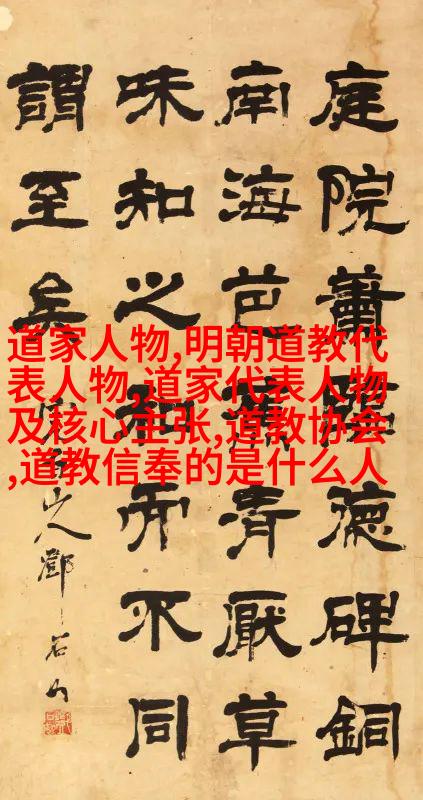 道家人物,明朝道教代
表人物,道家代表人物
及核心主张,道教协会
,道教信奉的是什么人
庭院蕭德碑銅
南海芭青厭草
味知之和而不同
謂至矣
山人鄧石